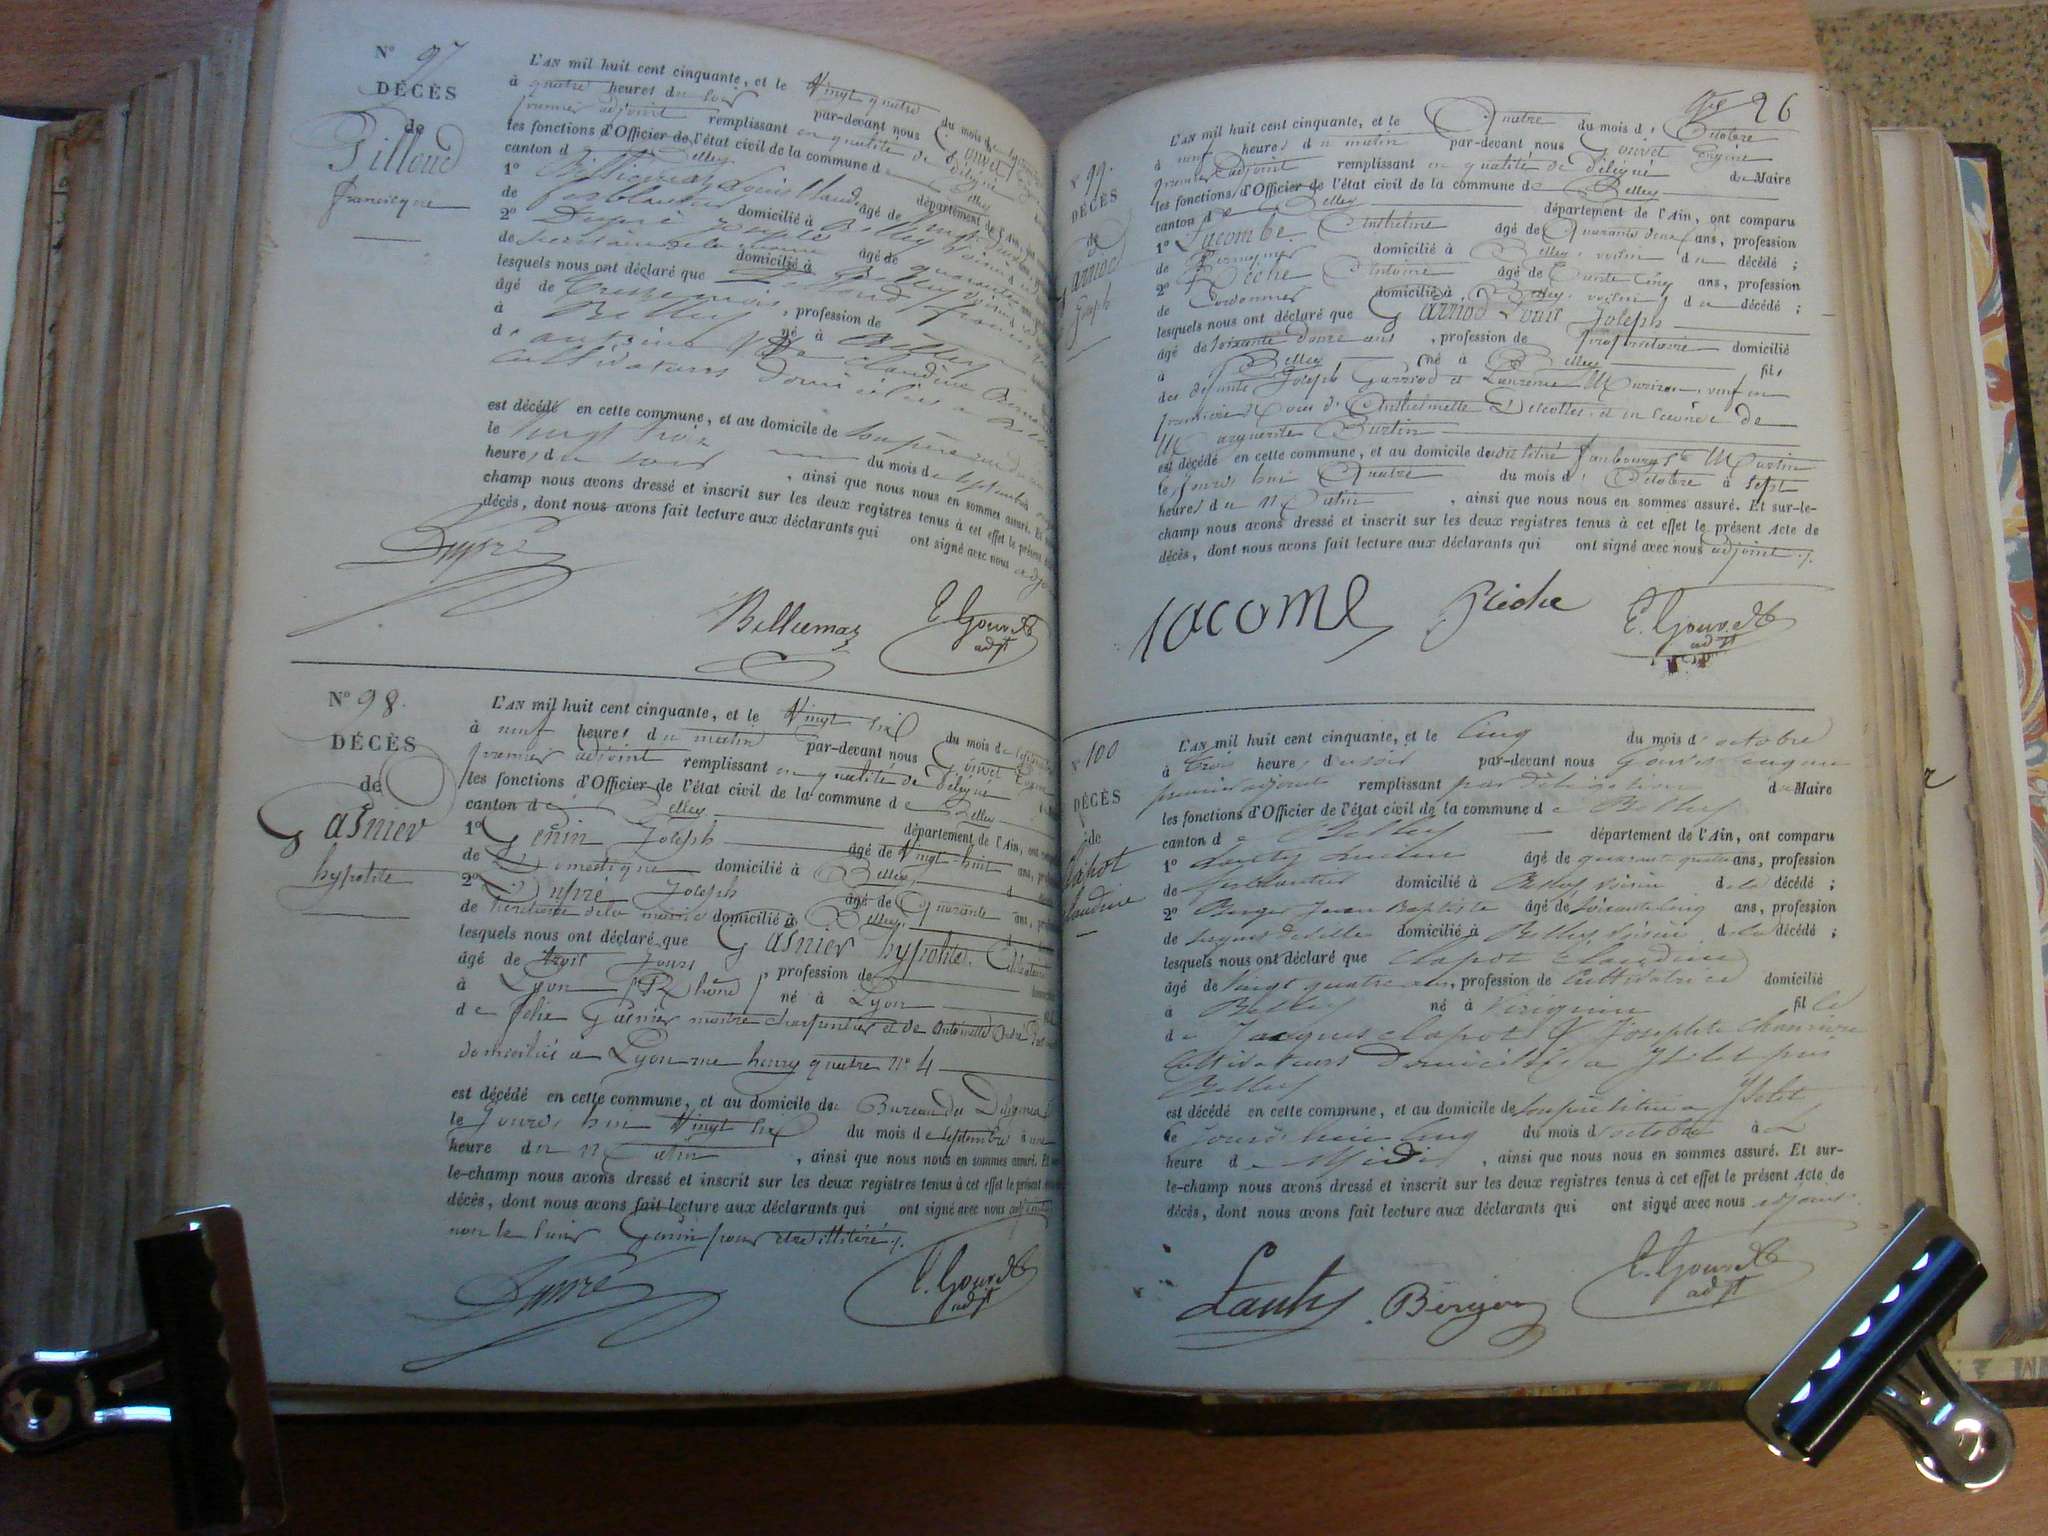 N° 97
DÉCÈS
de
Pilloud
Francisque
L'AN mil huit cent cinquante, et le Vingt quatre du mois de
à quatre heures du soir par-devant nous Gouvet
premier adjoint remplissant en qualité de Délégué
les fonctions d'Officier de l'état civil de la commune de Belley
canton de Belley département de l'Ain, ont
1° Louis Claude âgé de
de ferblantier domicilié à Belley
2° Dupré Joseph âgé de quarante
de secrétaire de la mairie domicilié à Belley
lesquels nous ont déclaré que Pilloud
âgé de treize mois, profession de
à Belley né à Belley
de antoine claudine
cultivateurs domiciliés à Belley
est décédé en cette commune, et au domicile de son père
le vingt trois du mois de septembre
heures du soir, ainsi que nous nous en sommes assuré. Et
champ nous avons dressé et inscrit sur les deux registres tenus à cet effet le présent
décès, dont nous avons fait lecture aux déclarants qui ont signé avec nous
Dupré
Bellemaz
E. Gouvet
adjt
N° 98.
DÉCÈS
de
Gasnier
hypolite
L'AN mil huit cent cinquante, et le Vingt six du mois de septembre
à neuf heures du matin par-devant nous Gouvet
premier adjoint remplissant en qualité de Délégué
les fonctions d'Officier de l'état civil de la commune de Belley
canton de Belley département de l'Ain, ont
1° Genin Joseph âgé de Vingt huit ans,
de Domestique domicilié à Belley
2° Dupré Joseph âgé de Quarante ans,
de secrétaire de la mairie domicilié à Belley
lesquels nous ont déclaré que Gasnier hypolite. Célibataire
âgé de trois Jours, profession de
à Lyon (Rhône) né à Lyon
de félix Gasnier maitre charpentier et de Antoinette
domiciliés à Lyon rue henry quatre N° 4
est décédé en cette commune, et au domicile du Bureau des Diligences
le Jourd hui Vingt six du mois de septembre à une
heure du Matin, ainsi que nous nous en sommes assuré. Et
le-champ nous avons dressé et inscrit sur les deux registres tenus à cet effet le présent
décès, dont nous avons fait lecture aux déclarants qui ont signé avec nous adjoint
non le sieur Genin pour être illitéré ./.
Dupré
E. Gouvet
adjt
26
99.
DÉCÈS
de
Garriod
Joseph
L'AN mil huit cent cinquante, et le Quatre du mois d'Octobre
à neuf heures du matin par-devant nous Gouvet Eugène
premier Adjoint remplissant en qualité de Délégué du Maire
les fonctions d'Officier de l'état civil de la commune de Belley
canton de Belley département de l'Ain, ont comparu
1° Lacombe Anthelme âgé de Quarante deux ans, profession
de domicilié à Belley, voisin du décédé ;
2° Béche Antoine âgé de trente cinq ans, profession
de Cordonnier domicilié à Belley, voisin du décédé ;
lesquels nous ont déclaré que Garriod Louis Joseph
âgé de soixante douze ans, profession de Propriétaire domicilié
à Belley né à Belley fils
des défunts Joseph Garriod et Laurence veuf en
première Noces d'Anthelmette Descottes et en seconde de
Marguerite Burtin
est décédé en cette commune, et au domicile du dit situé faubourg St Martin
le Jourd hui Quatre du mois d'Octobre à sept
heures du Matin, ainsi que nous nous en sommes assuré. Et sur-le-
champ nous avons dressé et inscrit sur les deux registres tenus à cet effet le présent Acte de
décès, dont nous avons fait lecture aux déclarants qui ont signé avec nous adjoint ./.
lacome
Béche
E. Gouvet
adjt
N° 100
DÉCÈS
de
Clapot
Claudine
L'AN mil huit cent cinquante, et le Cinq du mois d'octobre
à trois heures du soir par-devant nous Gouvet eugène
premier adjoint remplissant par délégation du Maire
les fonctions d'Officier de l'état civil de la commune de Belley
canton de Belley département de l'Ain, ont comparu
1° Lauty âgé de quarante quatre ans, profession
de ferblantier domicilié à Belley, voisin de la décédé ;
2° Berger Jean Baptiste âgé de soixante cinq ans, profession
de sergent de ville domicilié à Belley, voisin de la décédé ;
lesquels nous ont déclaré que Clapot Claudine
âgé de vingt quatre ans, profession de Cultivatrice domicilié
à Belley né à Virignin fille
de Jacques Clapot & Josephte
Cultivateurs Domiciliés à Itilet près
Belley
est décédé en cette commune, et au domicile de son père situé à
le Jourd'hui cinq du mois d'octobre à
heure de Midi, ainsi que nous nous en sommes assuré. Et sur-
le-champ nous avons dressé et inscrit sur les deux registres tenus à cet effet le présent Acte de
décès, dont nous avons fait lecture aux déclarants qui ont signé avec nous adjoint.
Lauty
Berger
E. Gouvet
adjt